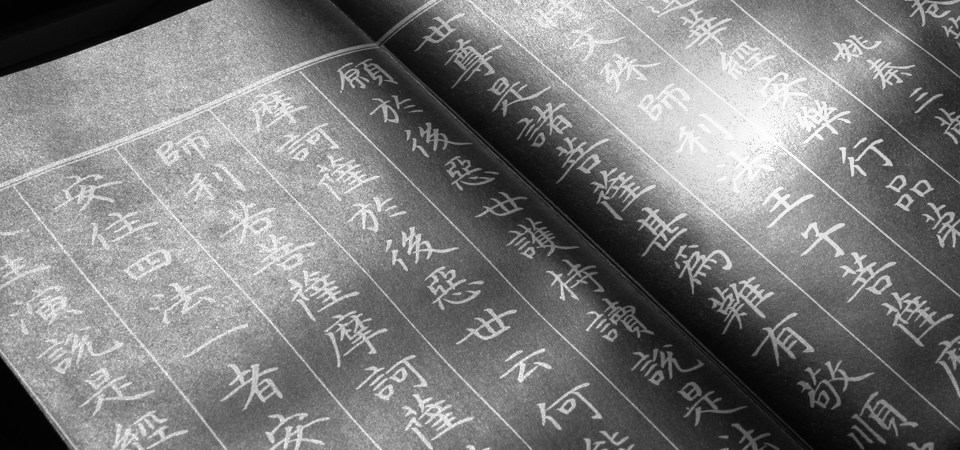 卷
姚秦三藏
華經安樂行品第
時文殊師利法王子菩薩摩
世尊是諸菩薩甚為難有敬順
願於後惡世護持讀說是法
摩訶薩於後惡世云何能
師利若菩薩摩訶薩
安住四法一者安
生演說是經